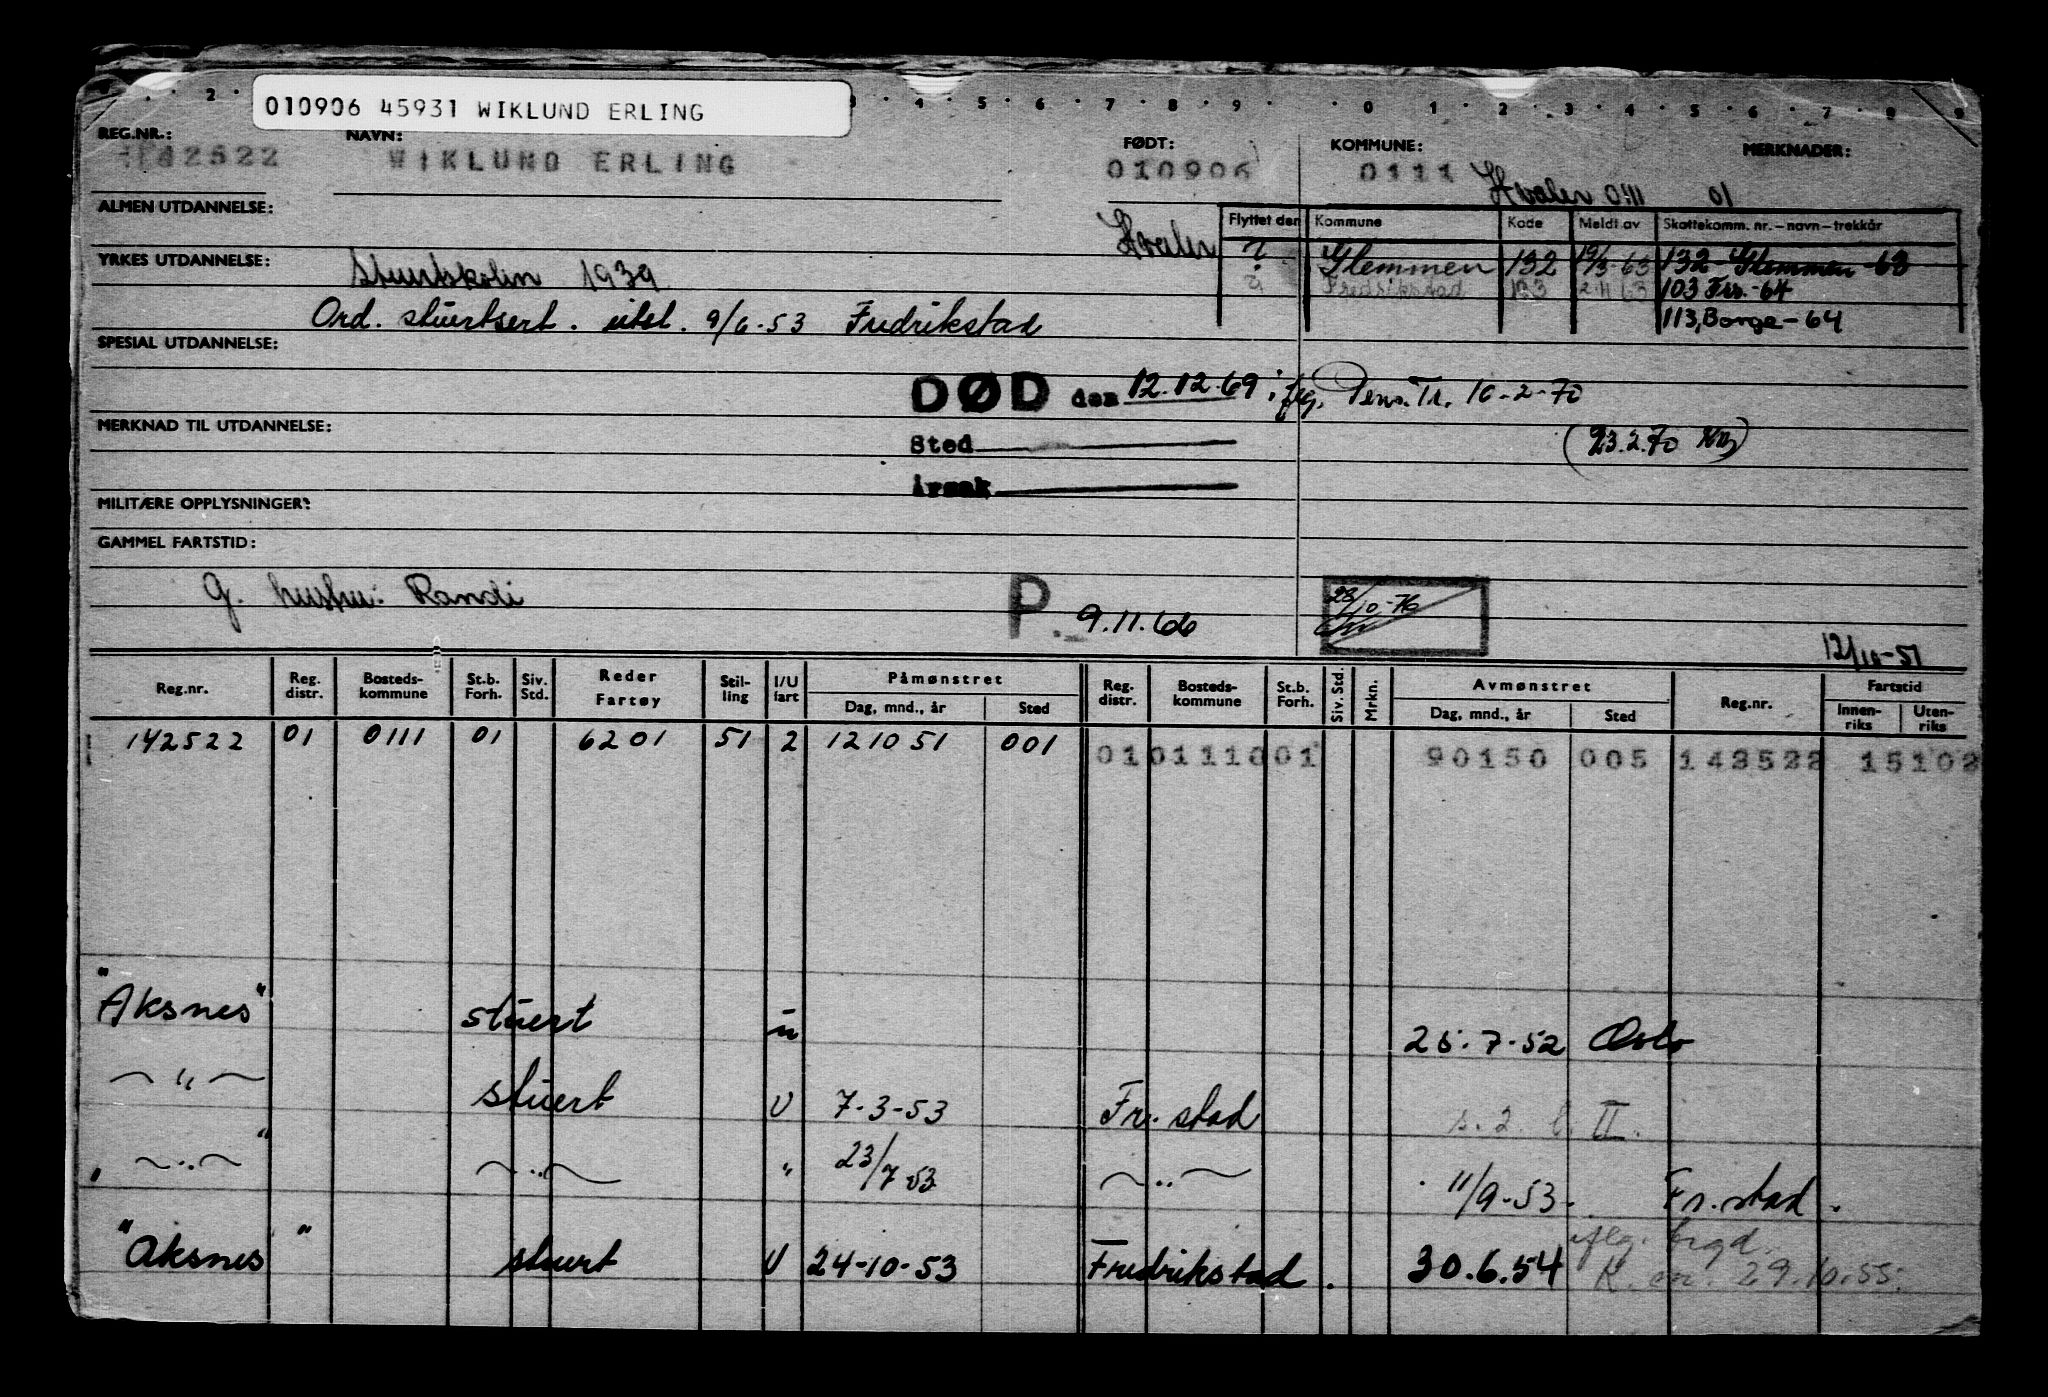 010906 45931 WIKLUND ERLING
2 3 4 5 6 7 8 9 0 1 2 3 4 5 6 7 8 9
REG.NR.: NAVN: FØDT: KOMMUNE: MERKNADER:
142522 WIKLUND ERLING 010906 0111 Hvaler 0111 01
ALMEN UTDANNELSE:
Hvaler
Flyttet den Kommune Kode Meldt av Skattekomm. nr. – navn – trekkår
? Glemmen 132 19/3-63 132 - Glemmen - 63
? Fredrikstad 103 2-11 63 103 Frs. - 64
113, Borge - 64
YRKES UTDANNELSE:
Stuertskolen 1939
Ord. stuertsert. utst. 9/6-53 Fredrikstad
SPESIAL UTDANNELSE:
DØD den 12.12.69 iflg. Pens.Tr. 10-2-70
MERKNAD TIL UTDANNELSE:
Sted
(23.2.70
Årsak
MILITÆRE OPPLYSNINGER:
GAMMEL FARTSTID:
g. hustru: Randi
P. 9.11.66
28/10-76
12/10-51
Reg.nr. Reg. distr. Bosteds-kommune St.b. Forh. Siv. Std. Reder Fartøy Stil-ling I/U fart Påmønstret Dag, mnd., år Sted Reg. distr. Bosteds-kommune St.b. Forh. Siv. Std. Mrkn. Avmønstret Dag, mnd., år Sted Reg.nr. Fartstid Innen-riks Uten-riks
142522 01 0111 01 6201 51 2 121051 001 01 0111 001 90150 005 142522 15102
"Aksnes" stuert u 25-7-52 Oslo
— " — stuert U 7-3-53 Fr.stad s. 2. b. II.
— " — — " — " 23/7-53 — " — 11/9-53 - Fr.stad.
"Aksnes" stuert U 24-10-53 Fredrikstad. 30.6.54 iflg. brgd.
29.10.55.